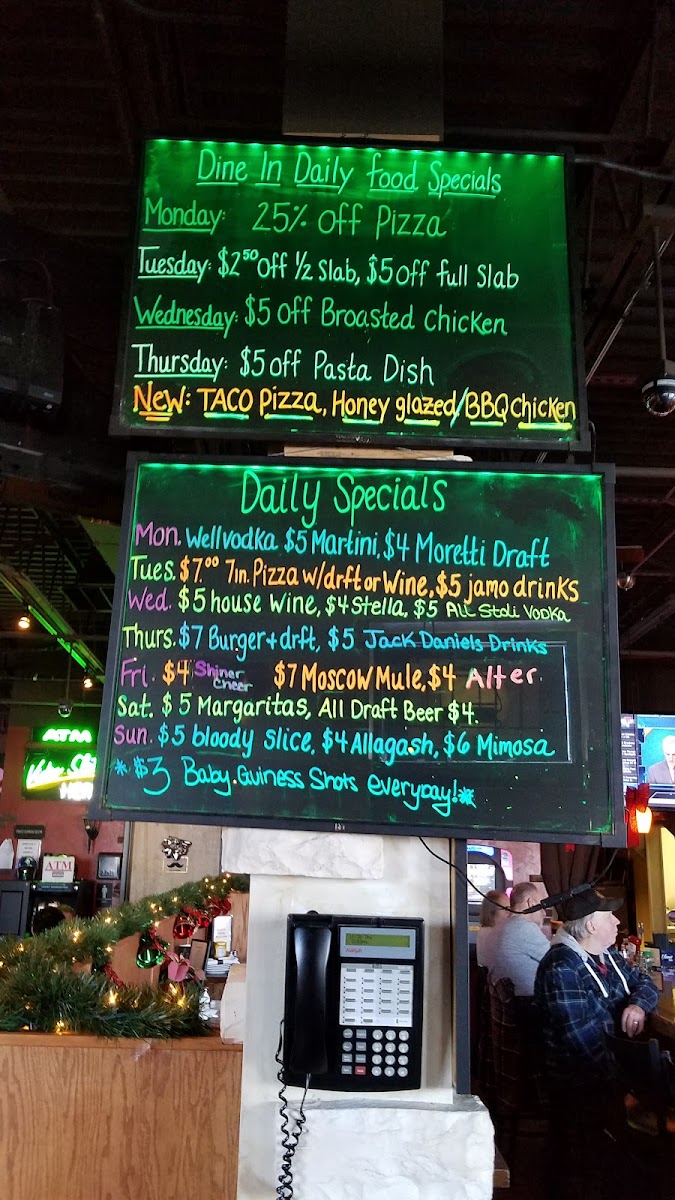 Dine In Daily Food Specials
Monday: 25% off Pizza
Tuesday: $2⁵⁰ off ½ Slab, $5 off full Slab
Wednesday: $5 off Broasted Chicken
Thursday: $5 off Pasta Dish
New: TACO Pizza, Honey glazed/BBQ chicken
Daily Specials
Mon. Wellvodka $5 Martini, $4 Moretti Draft
Tues. $7.⁰⁰ 7in. Pizza w/drft or Wine, $5 jamo drinks
Wed. $5 house Wine, $4 Stella, $5 All Stoli Vodka
Thurs. $7 Burger + drft, $5 Jack Daniels Drinks
Fri. $4 Shiner Cheer $7 Moscow Mule, $4 Alter
Sat. $5 Margaritas, All Draft Beer $4.
Sun. $5 bloody slice, $4 Allagash, $6 Mimosa
*$3 Baby Guiness Shots everyday!*
ATM
ATM